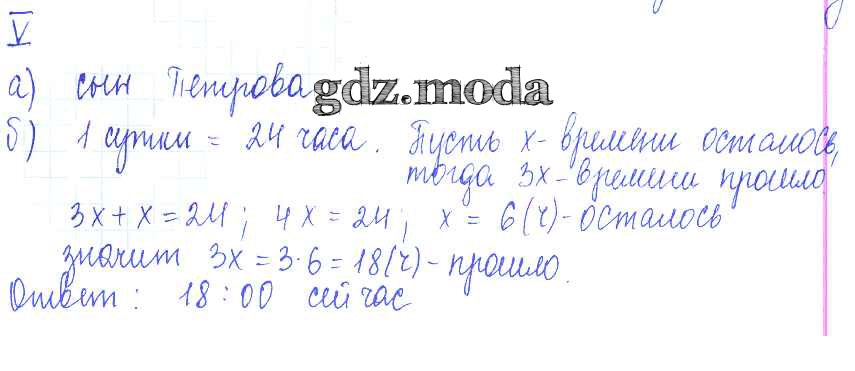 V
а) сын Петрова
gdz.moda
б) 1 сутки = 24 часа. Пусть х - времени осталось,
тогда 3х - времени прошло
3х + х = 24; 4х = 24; х = 6 (ч) - осталось
значит 3х = 3·6 = 18 (ч) - прошло.
Ответ: 18:00 сейчас